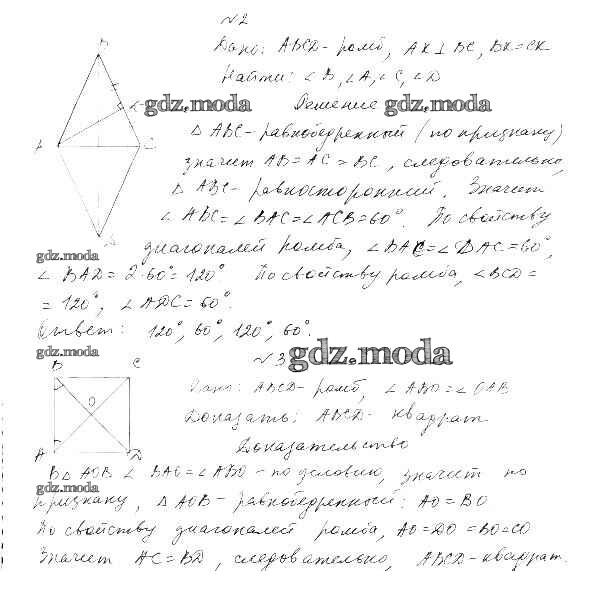 №2
Дано: ABCD - ромб, AK ⊥ BC, BK = CK
Найти: ∠B, ∠A, ∠C, ∠D
gdz.moda Решение gdz.moda
Δ ABC - равнобедренный (по признаку)
значит AB = AC = BC, следовательно,
Δ ABC - равносторонний. Значит
∠ABC = ∠BAC = ∠ACB = 60°. По свойству
диагоналей ромба, ∠BAC = ∠DAC = 60°,
gdz.moda
∠BAD = 2·60° = 120°. По свойству ромба, ∠BCD =
= 120°, ∠ADC = 60°.
Ответ: 120°, 60°, 120°, 60°.
gdz.moda
№3 gdz.moda
B C
O
A D
Дано: ABCD - ромб, ∠ABO = ∠OAB
Доказать: ABCD - квадрат
Доказательство
В Δ AOB ∠BAO = ∠ABO - по условию, значит по
gdz.moda
признаку, Δ AOB - равнобедренный: AO = BO
По свойству диагоналей ромба, AO = DO = BO = CO
Значит AC = BD, следовательно, ABCD - квадрат.